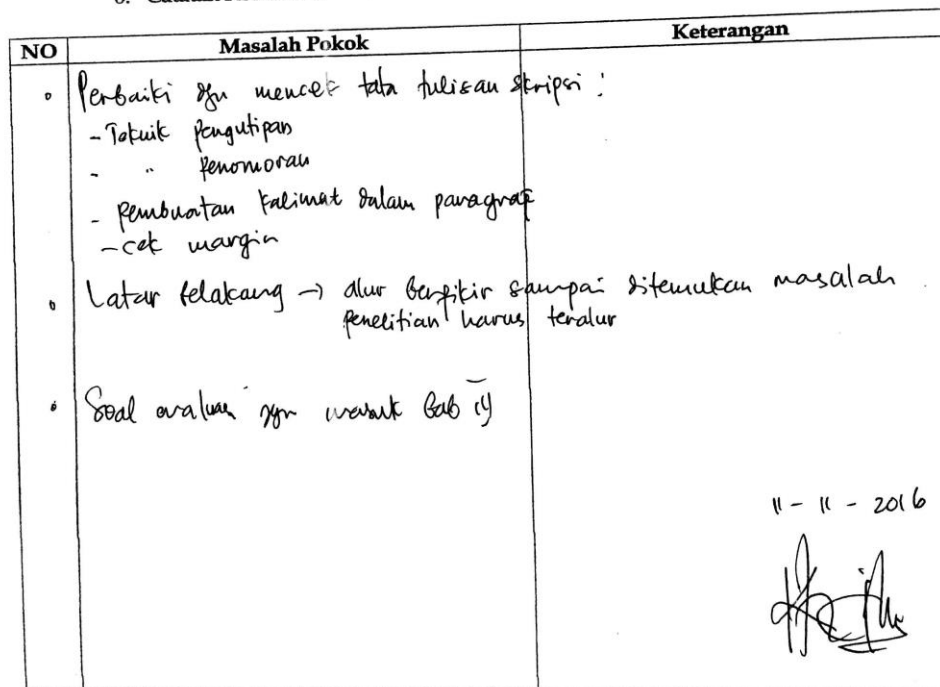 NO Masalah Pokok Keterangan
Perbaiki dgn mencek tata tulisan skripsi :
- Teknik pengutipan
- " penomoran
- pembuatan kalimat dalam paragraf
- cek margin
Latar belakang → alur berpikir sampai ditemukan masalah
penelitian harus teralur
Soal evaluasi dgn masuk Bab
11 - 11 - 2016